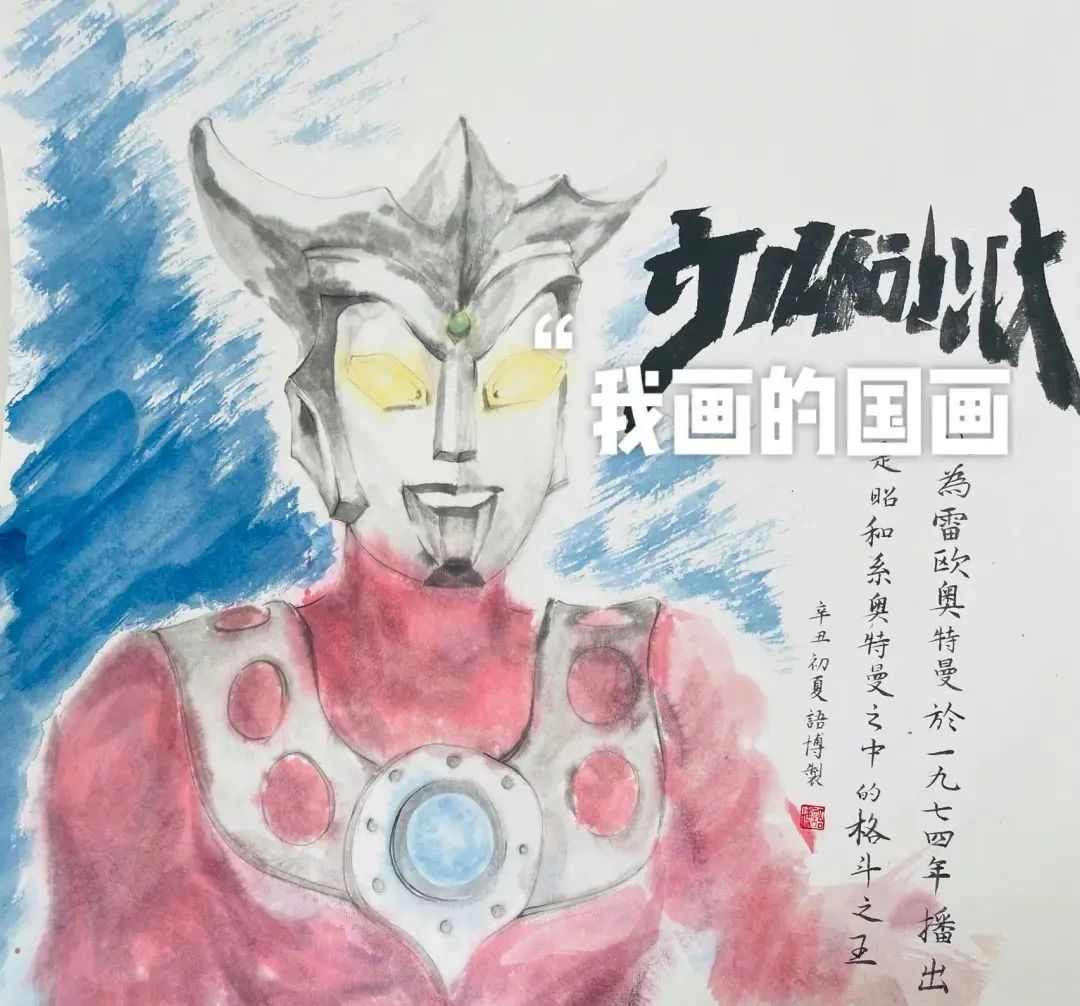 “
我画的国画
為雷欧奥特曼於一九七四年播出
是昭和系奥特曼之中的格斗之王
辛丑初夏語博製